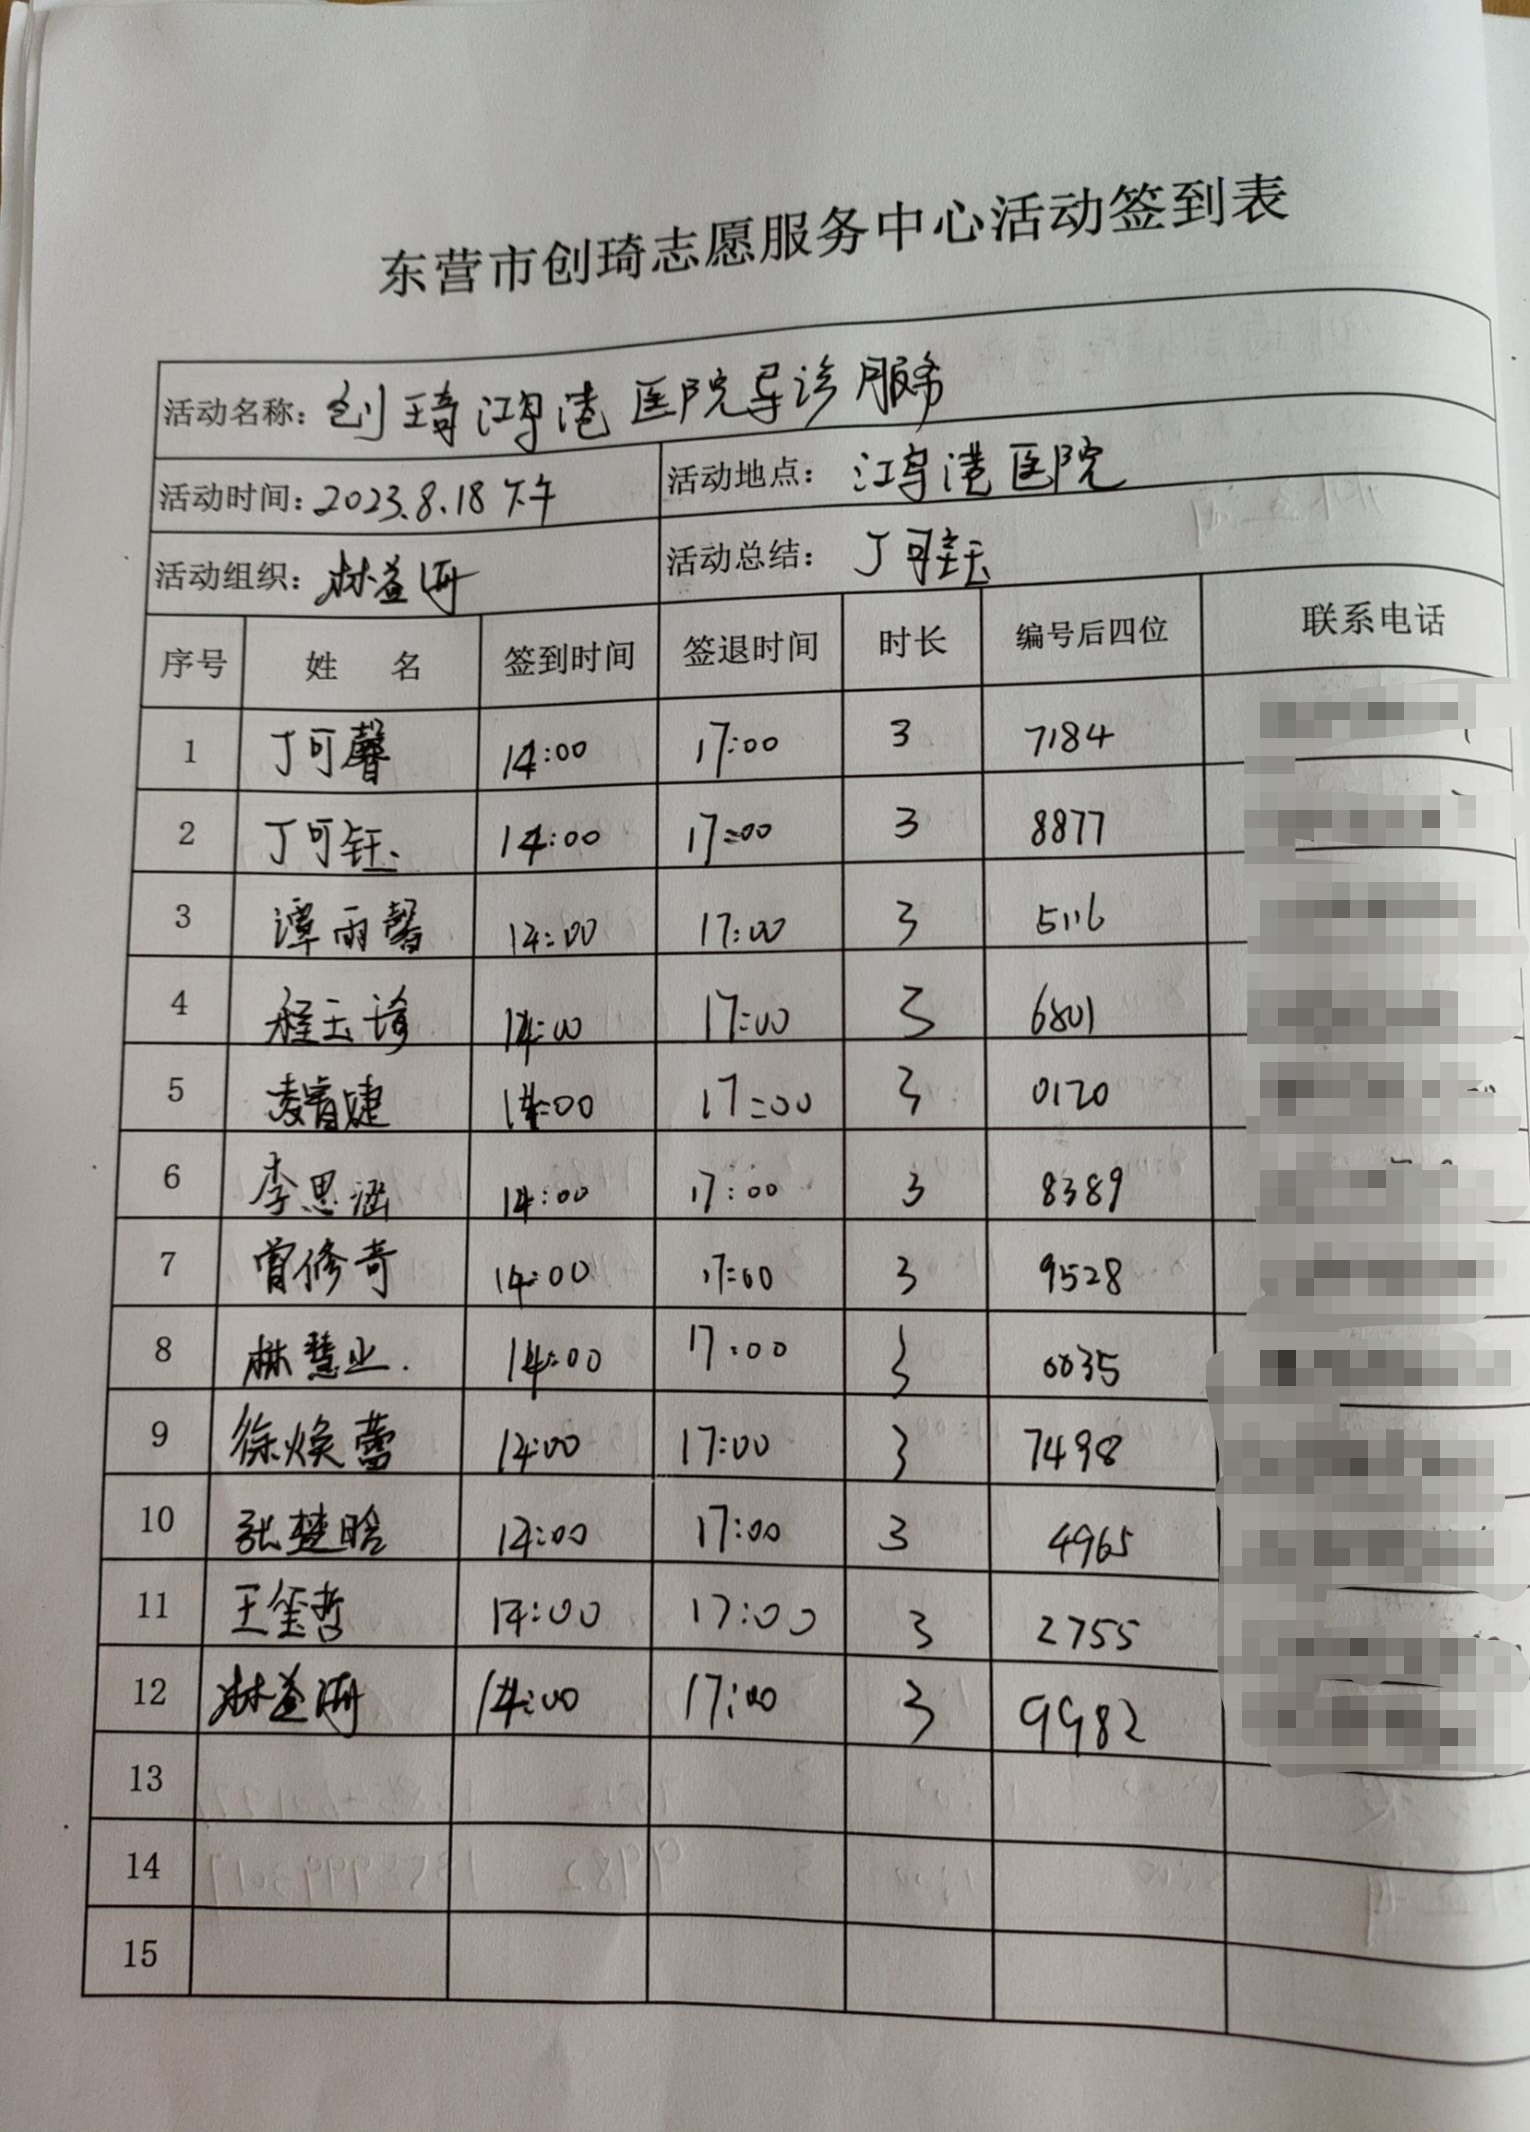 东营市创琦志愿服务中心活动签到表
活动名称：创琦鸿港医院导诊服务
活动时间：2023.8.18下午 活动地点：鸿港医院
活动组织：林益冊 活动总结：丁可钰
序号 姓 名 签到时间 签退时间 时长 编号后四位 联系电话
1 丁可馨 14:00 17:00 3 7184
2 丁可钰 14:00 17:00 3 8877
3 谭雨馨 14:00 17:00 3 5116
4 程玉琦 14:00 17:00 3 6801
5 14:00 17:00 3 0120
6 李思涵 14:00 17:00 3 8389
7 曾修奇 14:00 17:00 3 9528
8 林慧业 14:00 17:00 3 0035
9 徐焕蕾 14:00 17:00 3 7498
10 张楚晗 14:00 17:00 3 4965
11 王玺哲 14:00 17:00 3 2755
12 14:00 17:00 3 9982
13
14
15